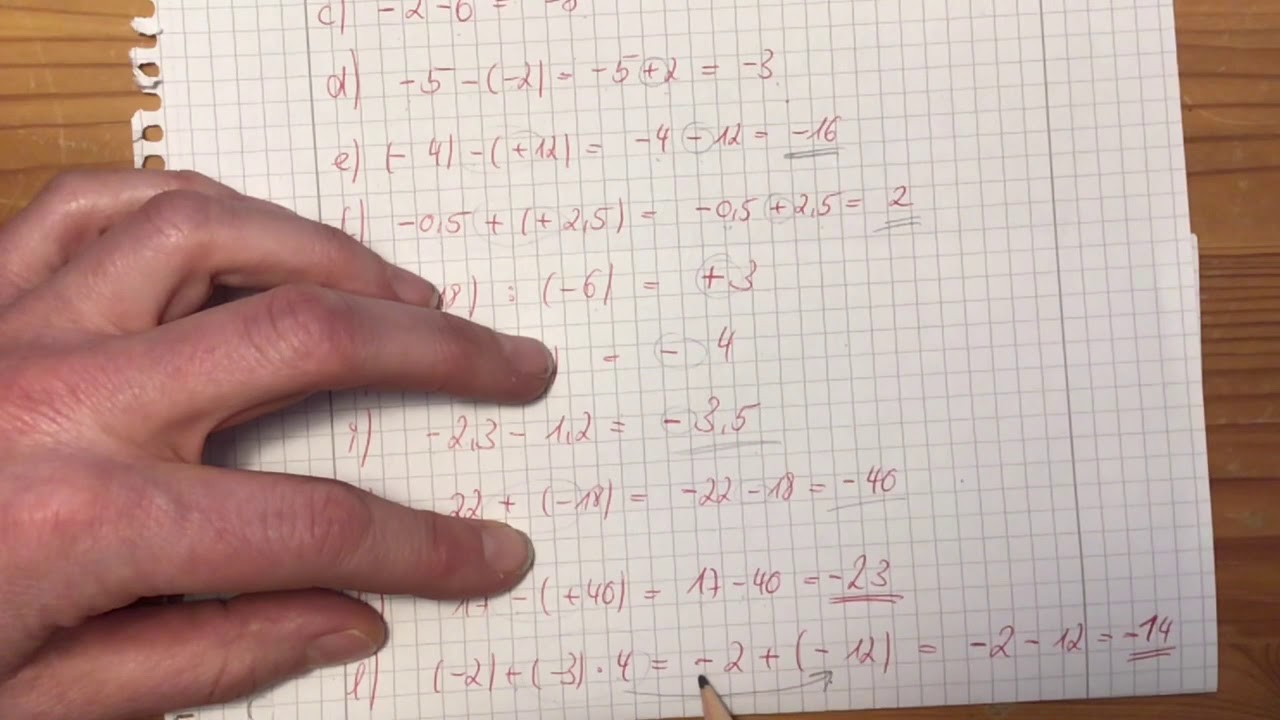 c) -2-6 = -8
d) -5-(-2) = -5+2 = -3
e) (-4)-(+12) = -4-12 = -16
f) -0,5+(+2,5) = -0,5+2,5 = 2
18) : (-6) = +3
) = - 4
i) -2,3-1,2 = -3,5
22+(-18) = -22-18 = -40
17-(+40) = 17-40 = -23
l) (-2)+(-3)·4 = -2+(-12) = -2-12 = -14